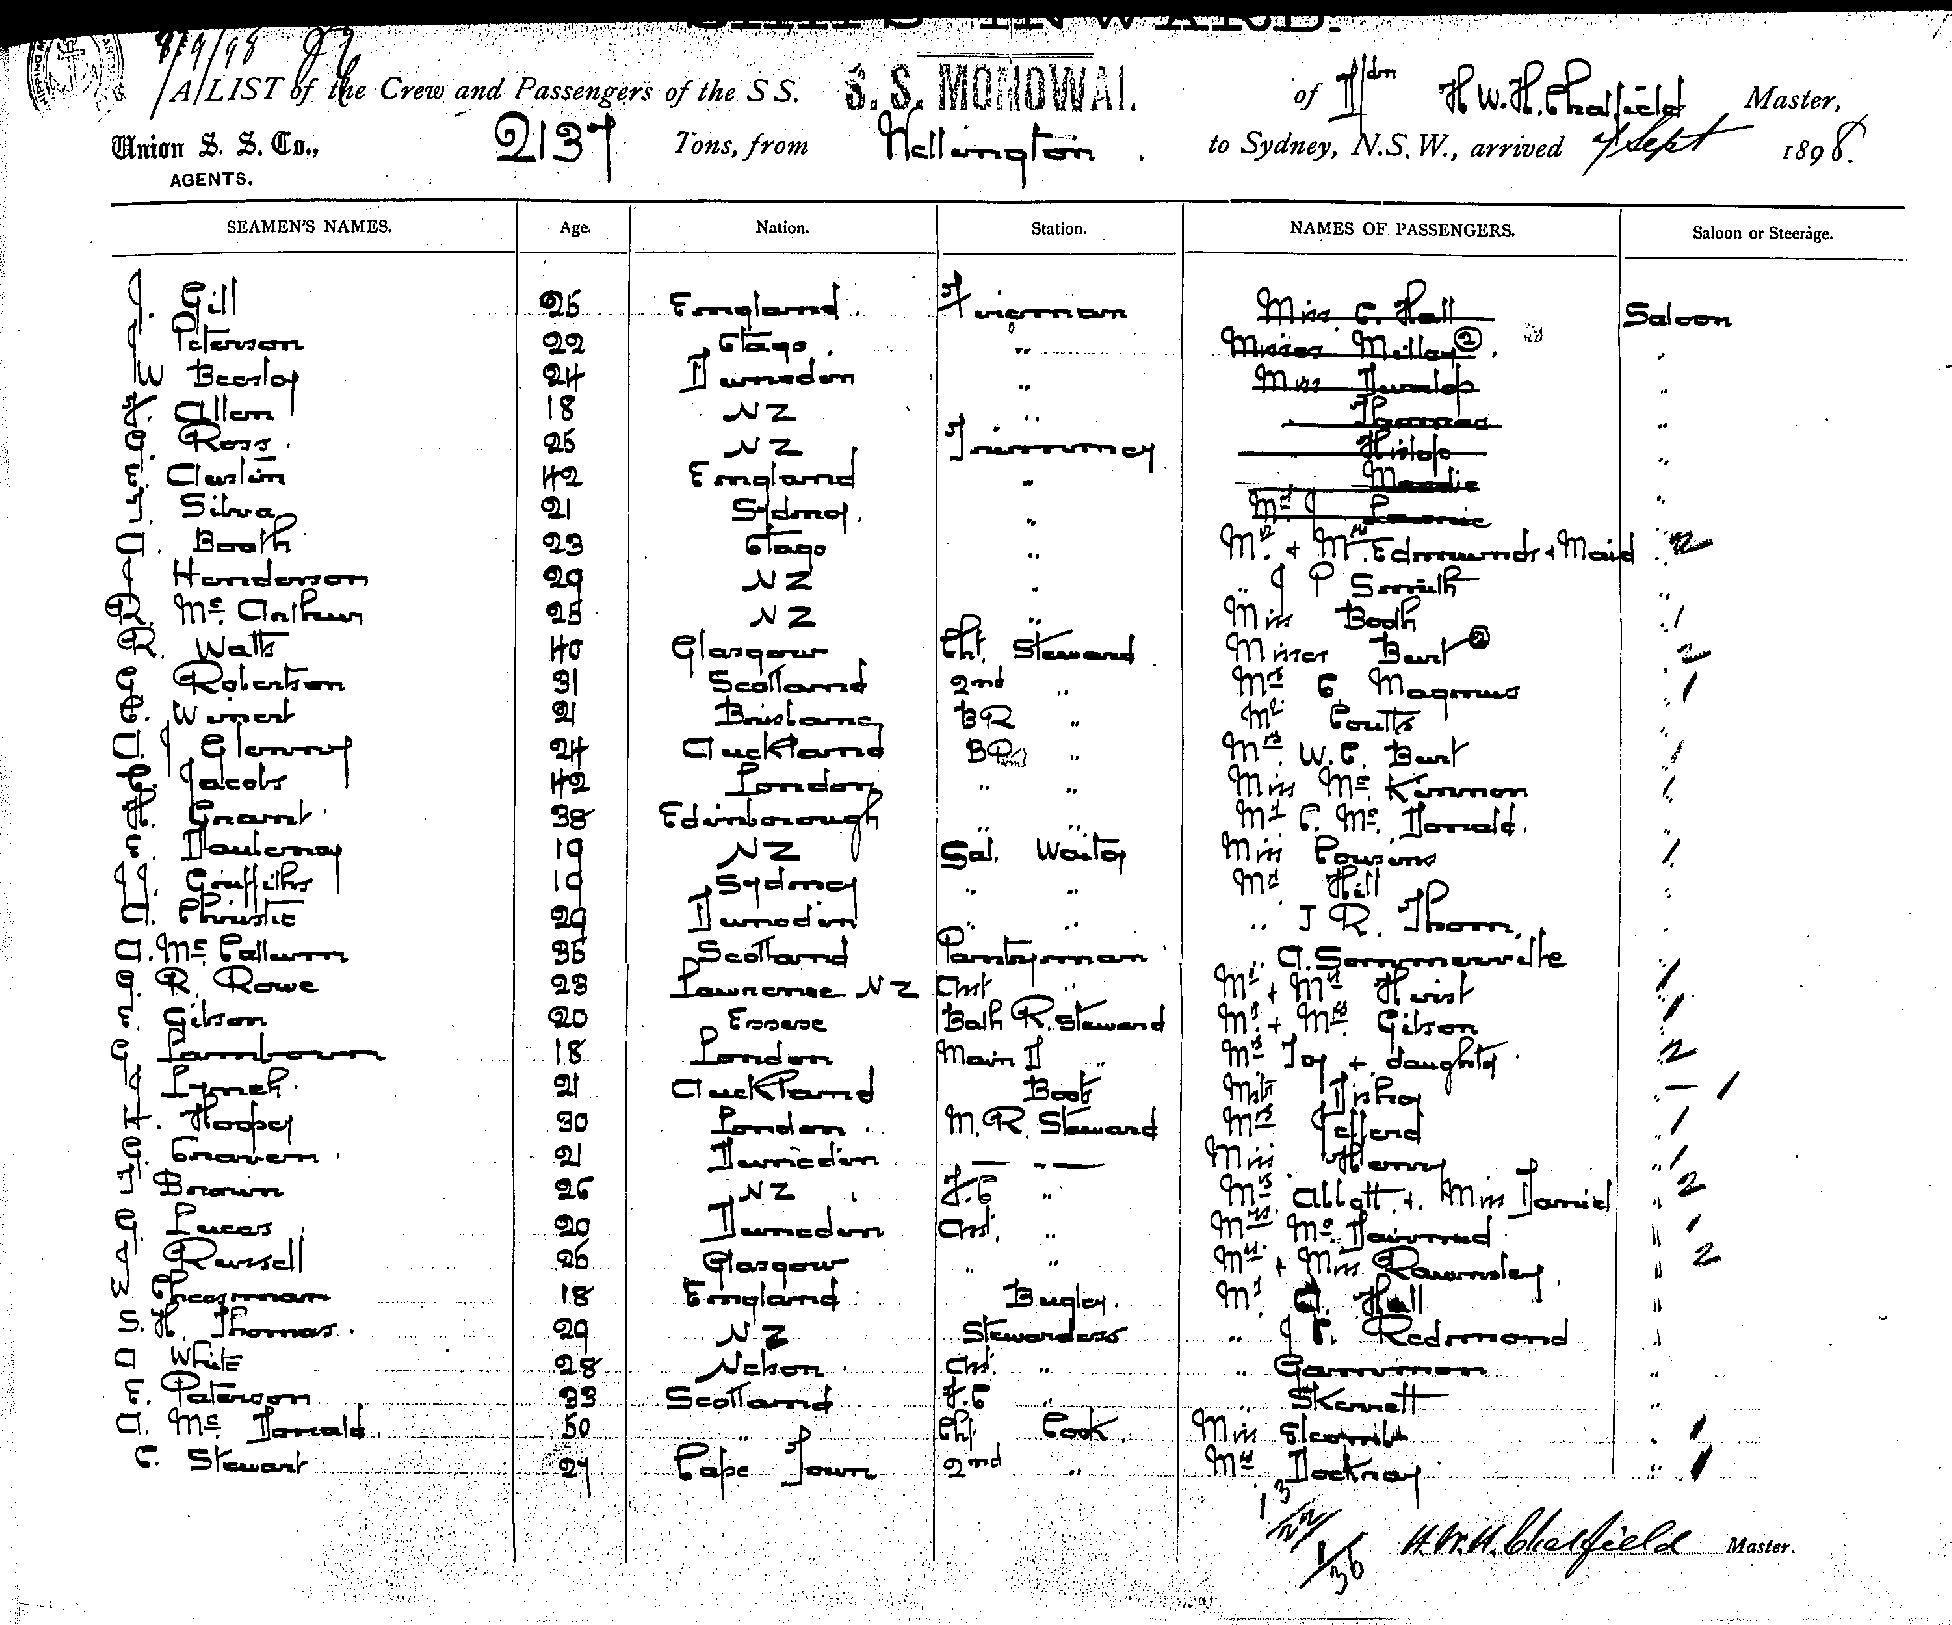 8/9/98
A LIST of the Crew and Passengers of the S S. S. S. MONOWAI. of H. W. H. Chatfield Master,
Union S. S. Co., 2137 Tons, from Wellington. to Sydney, N.S.W., arrived 7 Sept 1898.
AGENTS.
SEAMEN'S NAMES. Age. Nation. Station. NAMES OF PASSENGERS. Saloon or Steerage.
J. Gill 25 England Fireman Miss C. Hall Saloon
J Peterson 22 Otago " Misses 2 "
W 24 Dunedin " Miss Dunlop "
F. Allen 18 N Z " Thomas "
G. Ross. 25 N Z Trimmer Hislop "
E. Austin 42 England " "
J. Silva 21 Sydney. " Mr J "
A. Booth 23 Otago " Mr. + Mrs. Edmunds + Maid " 2
J Henderson 29 N Z " " J P Smith "
R. Mc. Arthur 25 N Z " Miss Booth " 1
R. Watts 40 Glasgow Cht. Steward Misses Burt 2 " 2
G Robertson 31 Scotland 2nd " Mrs C Magnus " 1
C. Winert 21 Brisbane BR " Mr Coutts "
A. J Glenny 24 Auckland BR " Mrs. W. C. Burt " 1
C. Jacobs 42 London " " Miss Mc. Kinnon " 1
A. Grant 38 Edinborough " " Mr C. Mc. Donald. "
E. Daubeney 19 N Z Sal. Waiter Miss Cousins " 1
J J. Griffiths 19 Sydney " " Mr Hill "
A. Christie 29 Dunedin " " " J R. Thom. "
A. Mc. Callum 35 Scotland Pantryman " A. Sommerville "
G. R. Rowe 23 Lawrence N Z Asst " Mr + Mrs Hirst " 1
E. Gibson 20 Essex Bath R. Steward Mr. + Mrs. Gibson " 1
G Lambourn 18 London Main D " Mrs Joy + daughter " 2
J Lynch. 21 Auckland Boots Disher " 1
H. Hooper 30 London M. R. Steward Mrs Jefferd " 1
G. Craven. 21 Dunedin — " — Miss Henry " 1
J Brown 26 N Z F.C " Mrs Abbott + Miss Daniel " 2
G. Lucas 20 Dunedin Asst. " Mrs Mc. Dairmid " 1
J Russell 26 Glasgow " " Mrs + Miss Rawnsley " 2
W Cheesman 18 England Bugler. Mr A. Hall "
S. H. Thomas. 29 N Z Stewardess " J C. Redmond "
A White 28 Nelson Asst. " " Gammon "
E. Paterson 33 Scotland F.C " " Skennett "
A. Mc Donald. 50 " Chf. Cook. Miss " 1
C. Stewart 27 Cape Town 2nd " Mrs Docknay " 1
13
22
1/36
H. W. H. Chatfield Master.